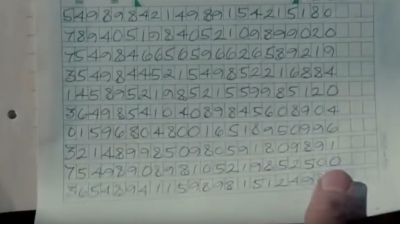 54989842114989154215180
7894051984052109899020
7549846650596626589219
3549844521549852216884
1458952198521559985120
3649854104089845608904
0159680480016518950996
3214899850980591809891
7549890898105219852500
36548941159898151249